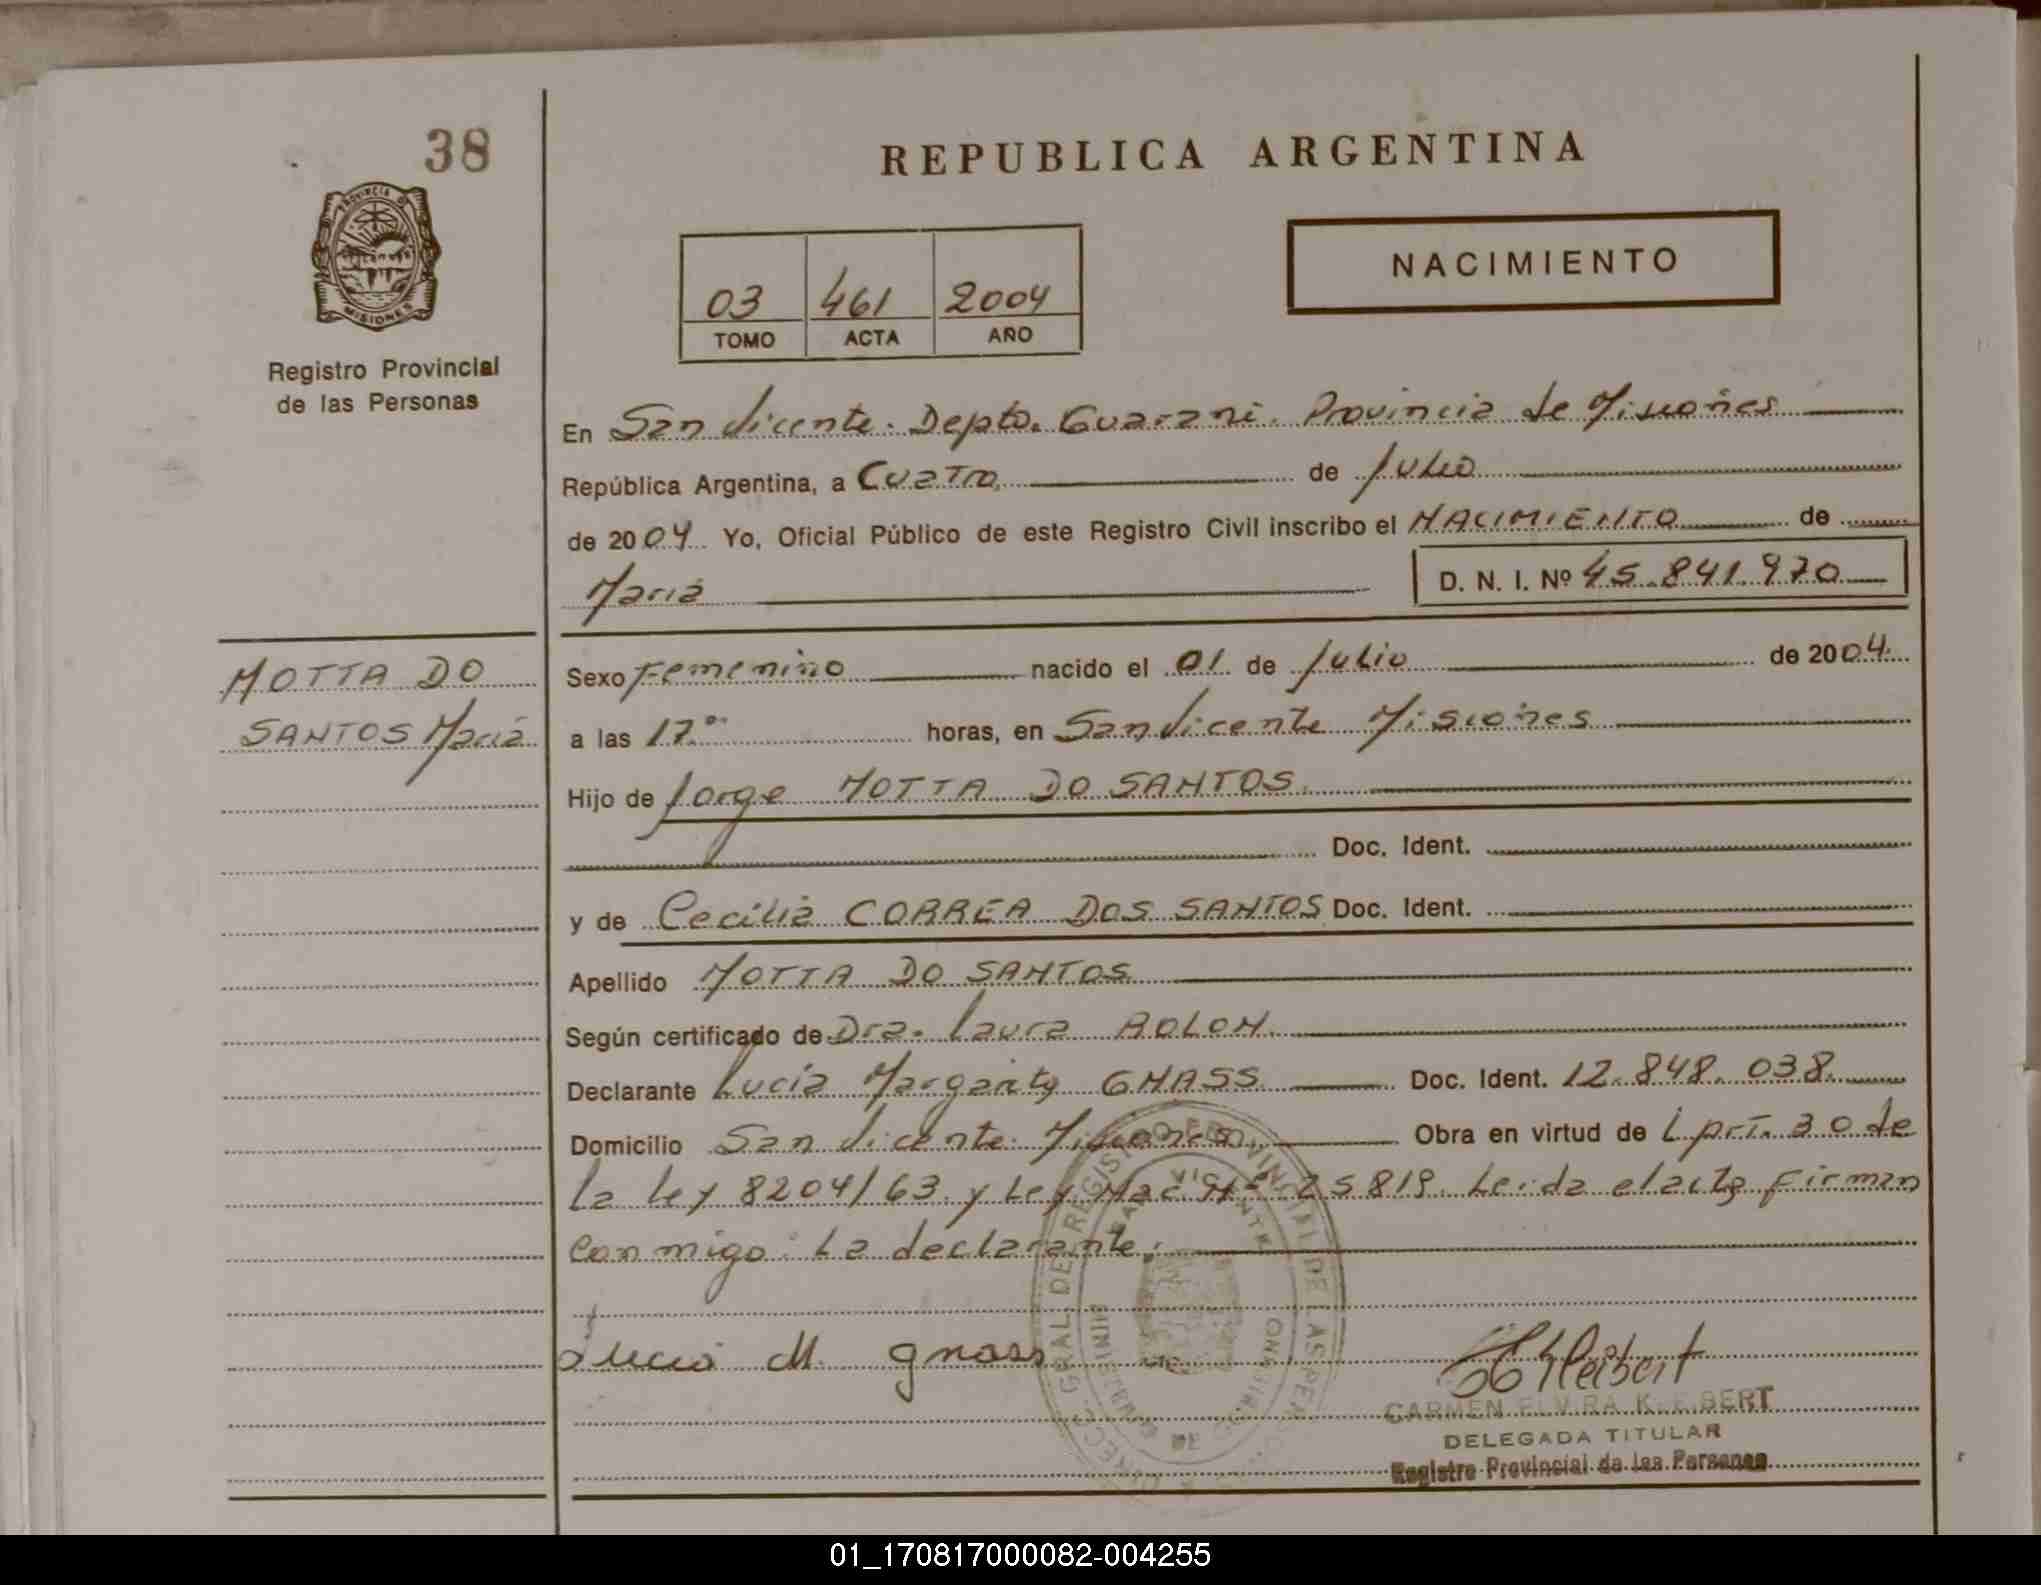 38
REPUBLICA ARGENTINA
PROVINCIA DE
MISIONES
Registro Provincial
de las Personas
03 461 2004
TOMO ACTA AÑO
NACIMIENTO
En San Vicente. Depto. Guarani. Provincia de Misiones
República Argentina, a Cuatro de Julio
de 2004 Yo, Oficial Público de este Registro Civil inscribo el NACIMIENTO de
Maria D. N. I. Nº 45.841.970
MOTTA DO
SANTOS Maria
Sexo Femenino nacido el 01 de Julio de 2004.
a las 17.º horas, en San Vicente Misiones
Hijo de Jorge MOTTA DO SANTOS.
Doc. Ident.
y de Cecilia CORREA DOS SANTOS Doc. Ident.
Apellido MOTTA DO SANTOS
Según certificado de Dra. Laura ROLON.
Declarante Lucia Margarita GNASS Doc. Ident. 12.848.038.
Domicilio San Vicente. Misiones. Obra en virtud de
La Ley 8204/63. y Ley Nac Nº 25819. Leida el acta firman
Con migo: La declarante.
Lucia M. gnass
CARMEN ELVIRA KLEIBERT
DELEGADA TITULAR
Registro Provincial de las Personas
01_170817000082-004255